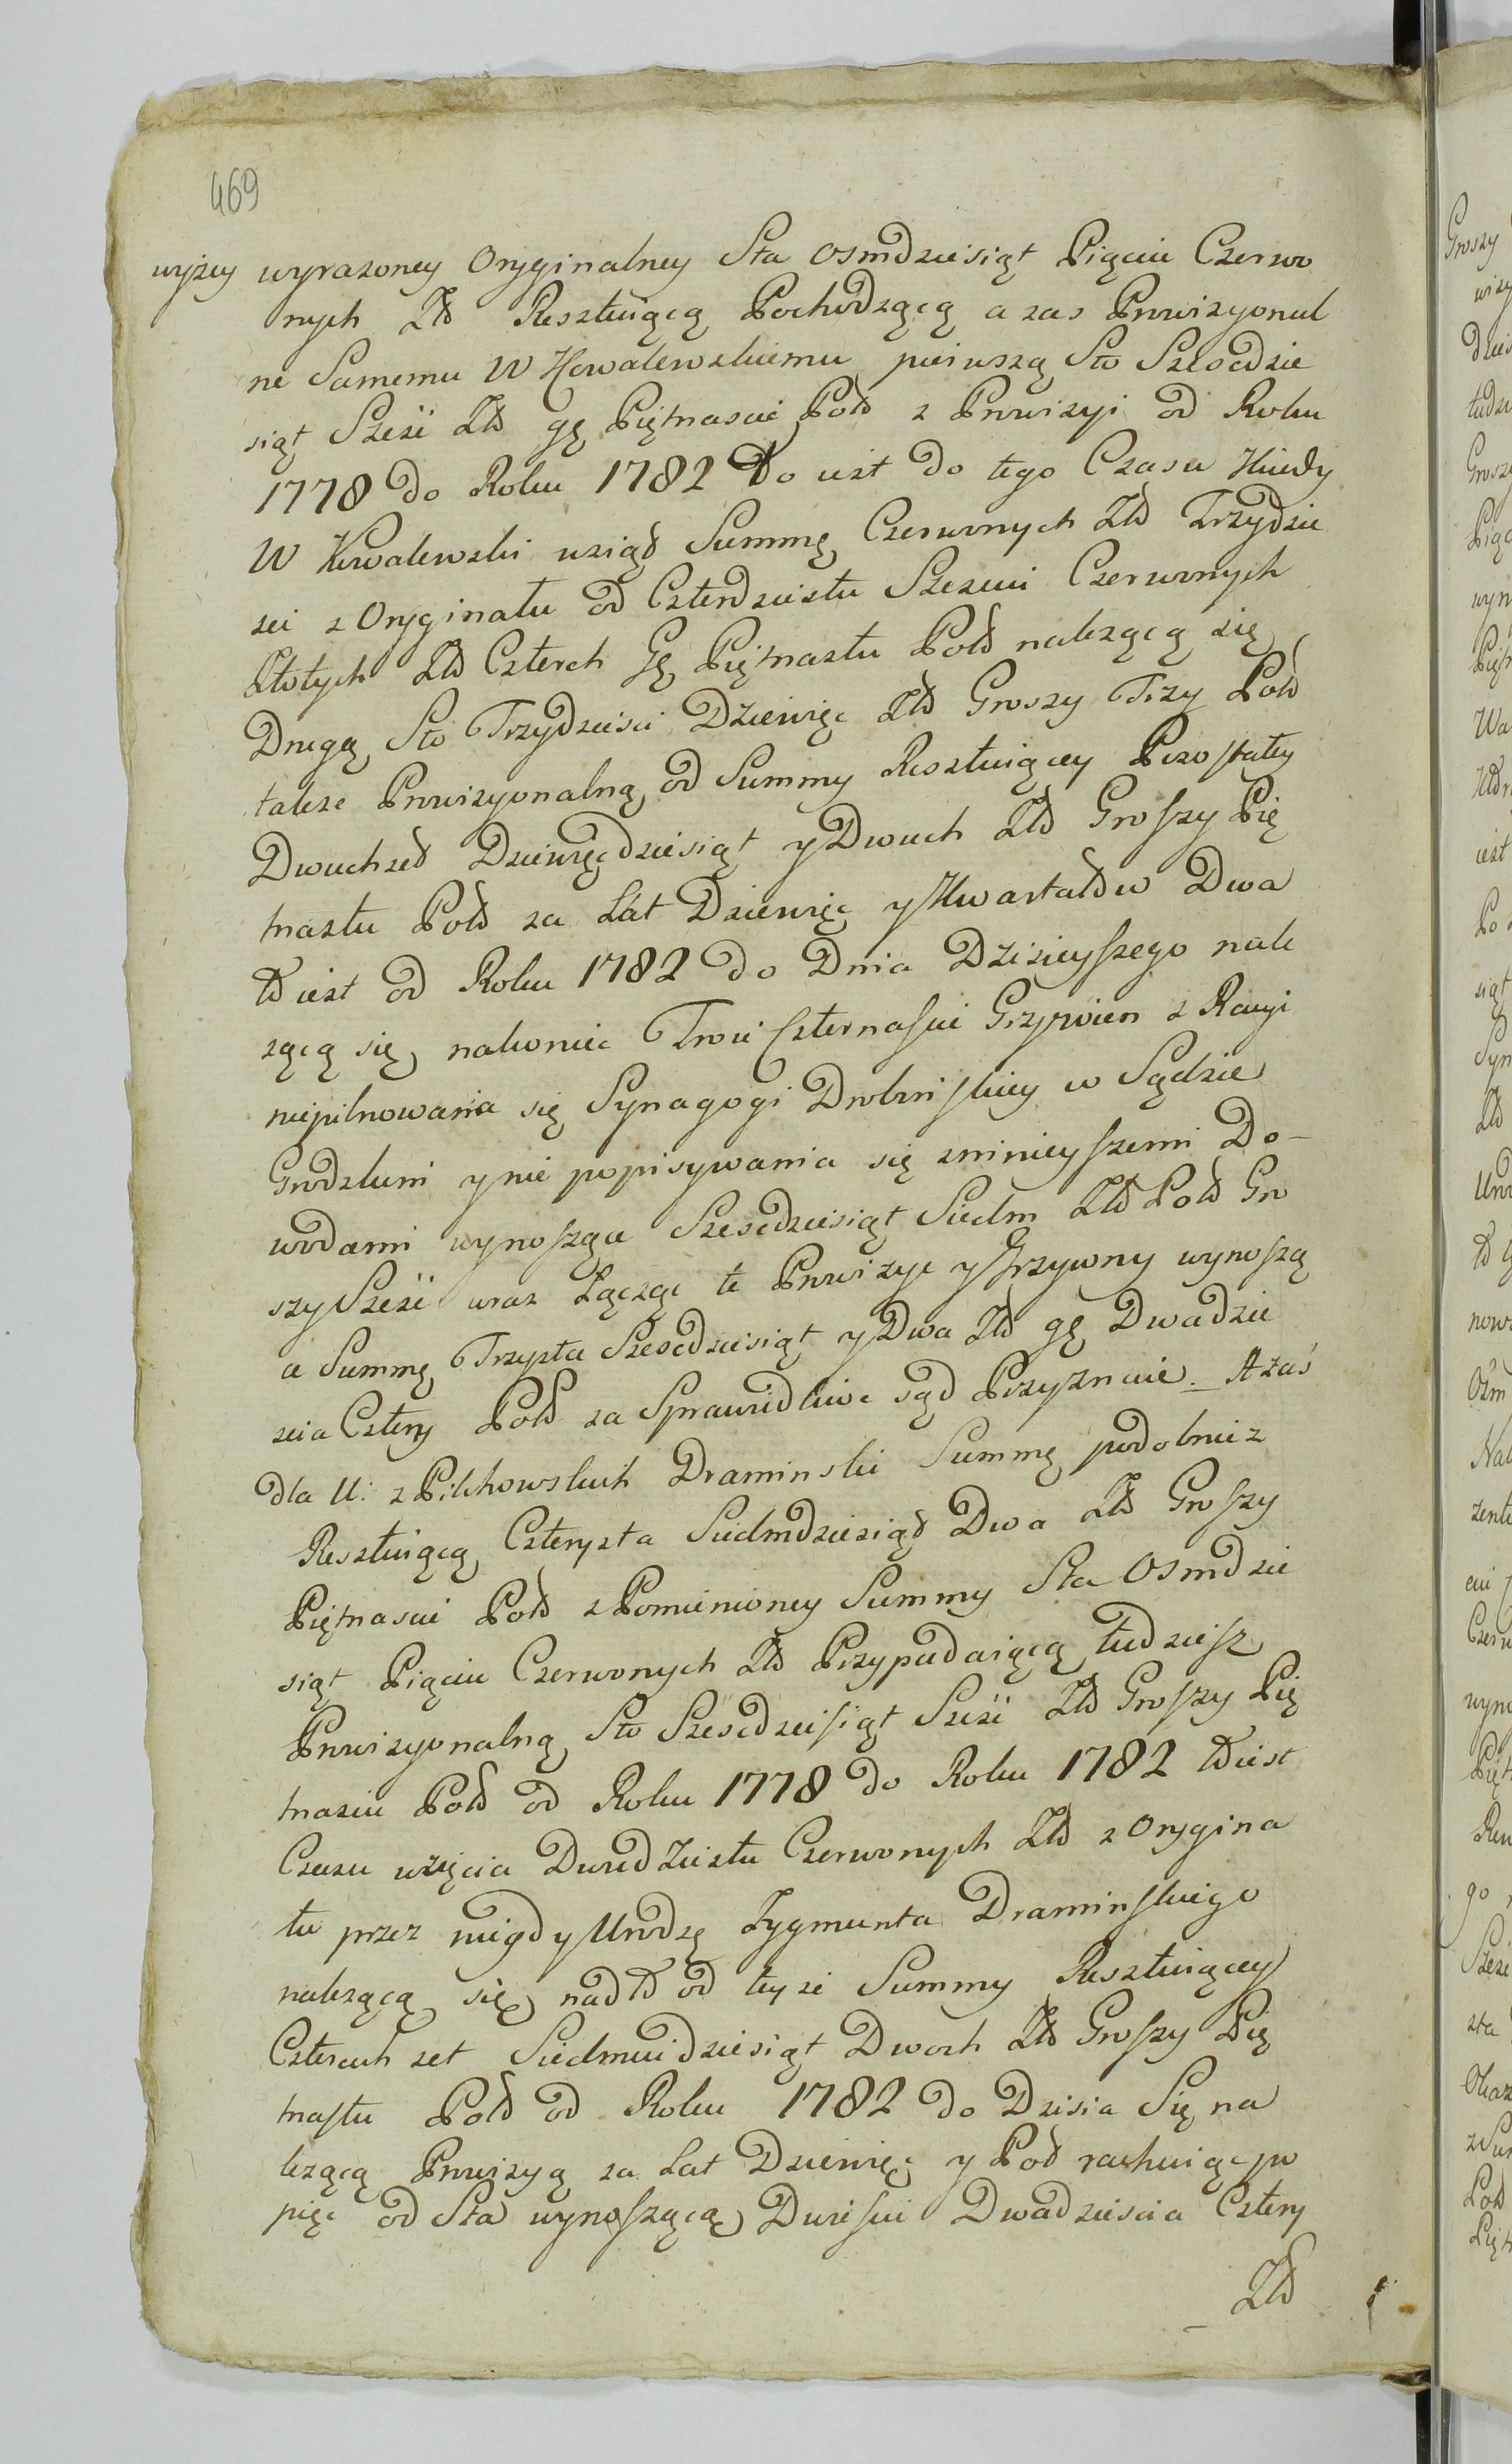 469
wyżey wyrazoney Oryginalney Sta Osmdziesiąt Pięciu Czerwo
nych Złł Resztuiącą Pochodzącą a zas Prowizyonal
ne Samemu W Kowalewskiemu pierwszą Sto Szescdzie
siąt Szesć Złł gę Piętnascie Poll z Prowizyi od Roku
1778 do Roku 1782 to iest do tego Czasu Kiedy
W Kowalewski wziął Summę Czerwonych Złł Trzydzie
sci z Oryginału od Czterdziestu Szesciu Czerwonych
Złotych Złł Czterech Gę Piętnastu Poll nalezącą się
Drugą Sto Trzydziesci Dziewięc Złł Groszy Trzy Poll
takze Prowizyonalną od Summy Resztuiącey Pozostałey
Dwuchset Dziewięcdziesiąt y Dwuch Złł Groszy Pię
tnastu Poll za Lat Dziewięc y Kwartałow Dwa
to iest od Roku 1782 do Dnia Dzisieyszego nale
zącą się nakoniec Troie Czternascie Grzywien z Racyi
niepilnowania się Synagogi Drobinskiey w Sądzie
Grodzkim y nie popisywania się z ninieyszemi Do-
wodami wynoszące Szescdziesiąt Siedm Złł Poll Gro
szy Szesć wraz Łącząc te Prowizye y Grzywny wynoszą
ce Summę Trzysta Szescdziesiąt y Dwa Złł gę Dwadzie
scia Cztery Poll za Sprawiedliwe sąd Przyznaie. A zaś
dla U: z Pilchowskich Draminski Summę podobniez
Resztuiącą Czterysta Siedmdziesiąt Dwa Złł Groszy
Piętnascie Poll z Pomienioney Summy Sta Osmdzie
siąt Pięciu Czerwonych Złł Przypadaiącą tudziesz
Prowizyonalną Sto Szescdziesiąt Szesć Złł Groszy Pię
tnasciu Poll od Roku 1778 do Roku 1782 to iest
Czasu wzięcia Dwudziestu Czerwonych Złł z Orygina
łu przez niegdy Urodzę Zygmunta Draminskiego
nalezącą się nadto od teyze Summy Resztuiącey
Czterech set Siedmiudziesiąt Dwoch Złł Groszy Pię
tnastu Poll od Roku 1782 do Dzisia Się na
lezącą Prowizyą za Lat Dziewięc y Poł rachuiąc po
pięc od Sta wynoszącą Dwiescie Dwadziescia Cztery
Złł